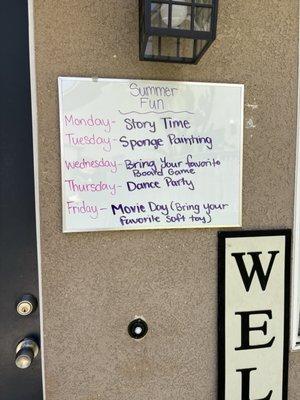 Summer
Fun
Monday- Story Time
Tuesday- Sponge Painting
Wednesday- Bring Your favorite
Board Game
Thursday- Dance Party
Friday- Movie Day (Bring your
favorite soft toy)
W
E
L